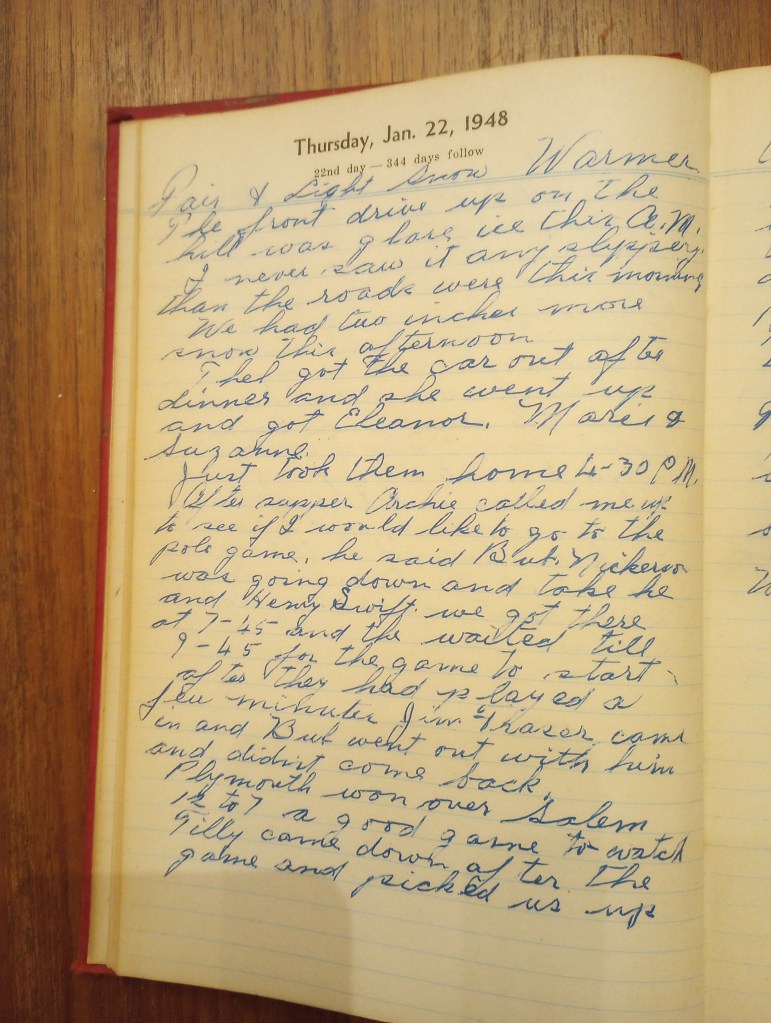 Thursday, Jan. 22, 1948
22nd day — 344 days follow
Fair & Light Snow Warmer
The front drive up on the
hill was glare ice this A.M.
I never saw it any slippery
than the roads were this morning
We had two inches more
snow this afternoon
Thel got the car out after
dinner and she went up
and got Eleanor, Marie &
Suzanne.
Just took them home 4-30 P.M.
After supper Archie called me up
to see if I would like to go to the
polo game, he said But. Nickerson
was going down and take he
and Henry Swift. we got there
at 7-45 and the waited till
9-45 for the game to start
after they had played a
few minutes Jim Frazer came
in and But went out with him
and didn't come back.
Plymouth won over Salem
12 to 7 a good game to watch
Tilly came down after the
game and picked us up